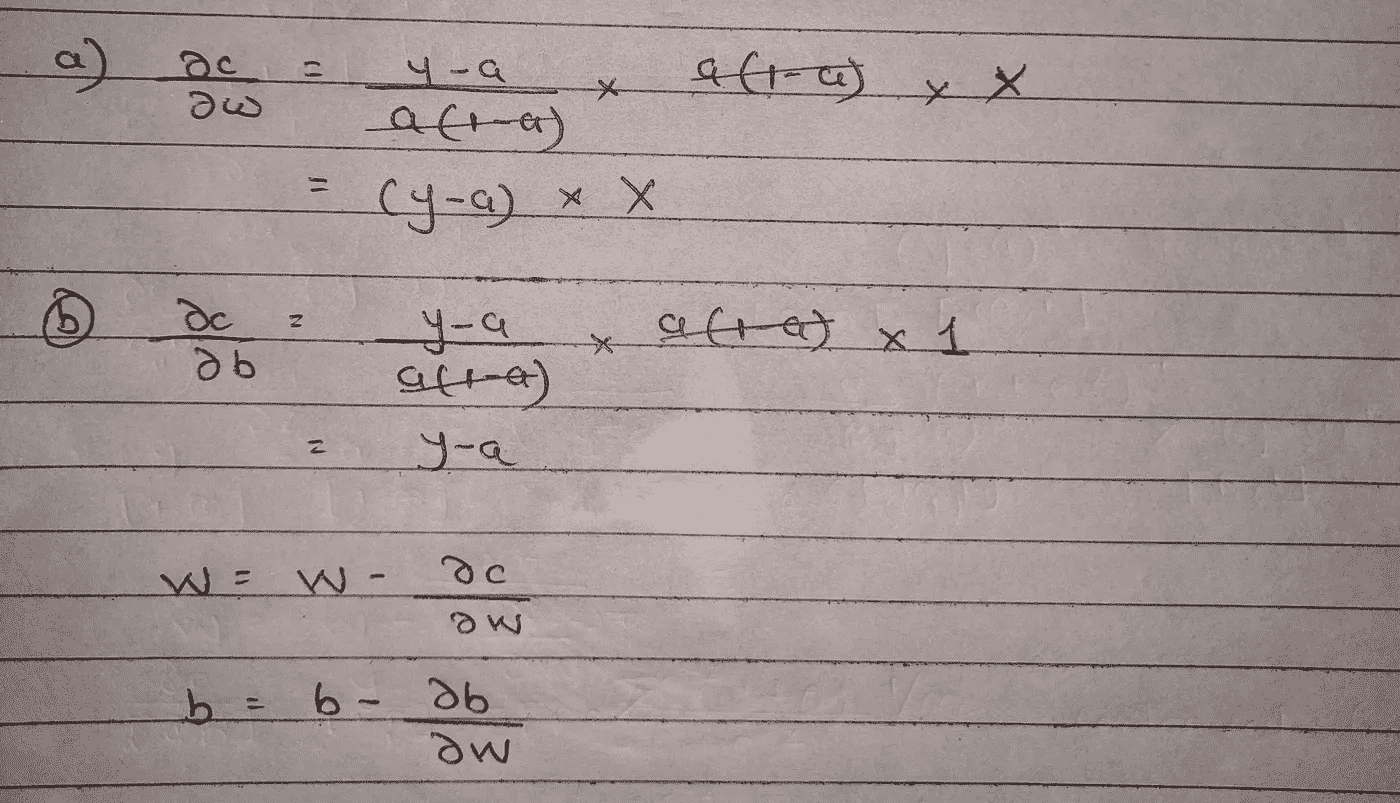 a) ∂c/∂w = y-a/a(1-a) × a(1-a) × X
= (y-a) × X
(b) ∂c/∂b = y-a/a(1-a) × a(1-a) × 1
= y-a
W = W - ∂c/∂w
b = b - ∂b/∂w